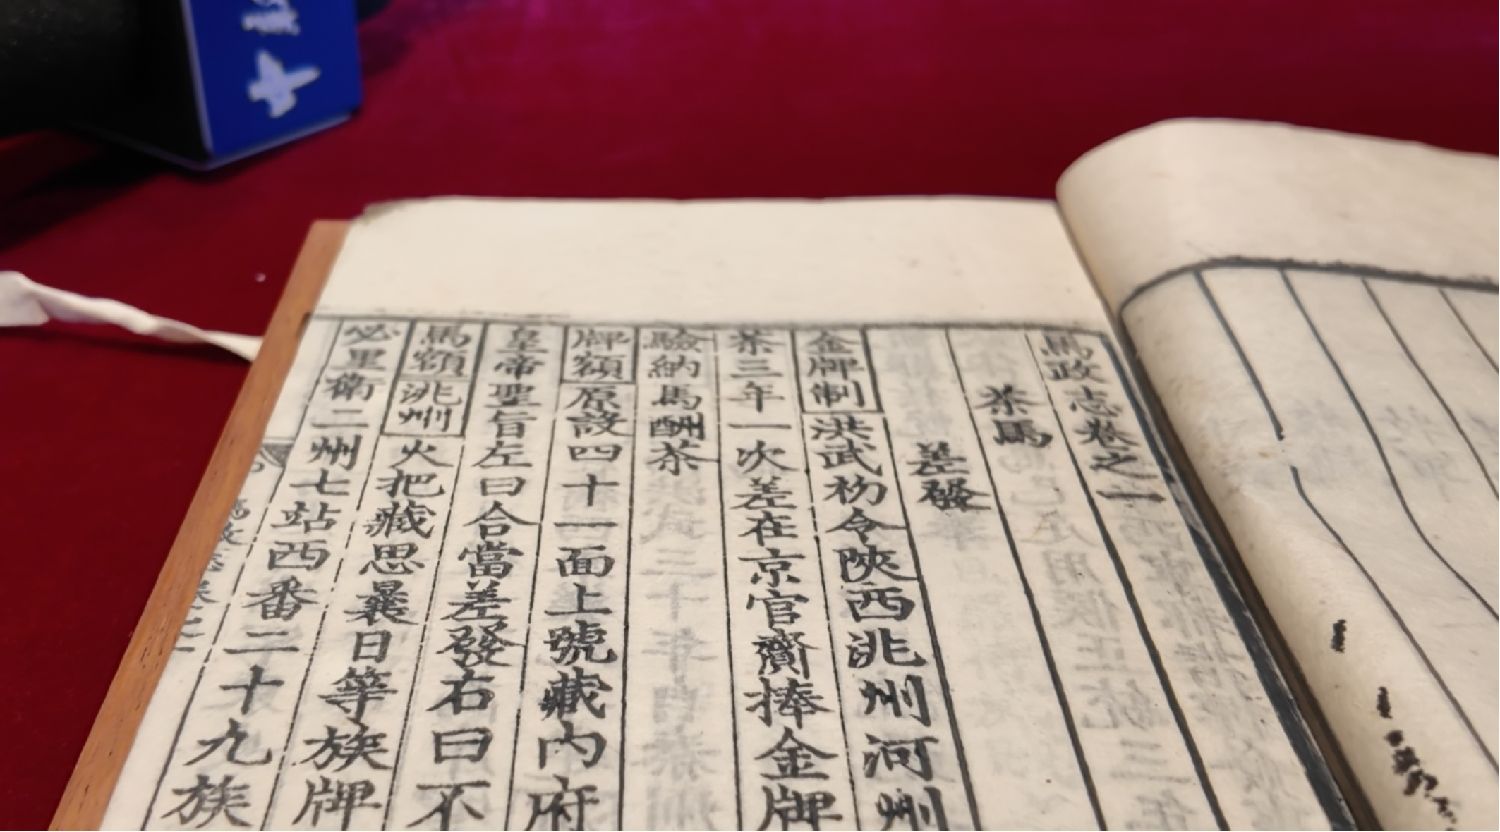 馬政志卷之一
茶馬
差發
金牌制洪武初令陝西洮州河州
茶三年一次差在京官齎捧金牌
驗納馬酬茶
牌額原設四十一面上號藏內府
皇帝聖旨左曰合當差發右曰不
馬額洮州火把藏思曩日等族牌
必里衛二州七站西番二十九族